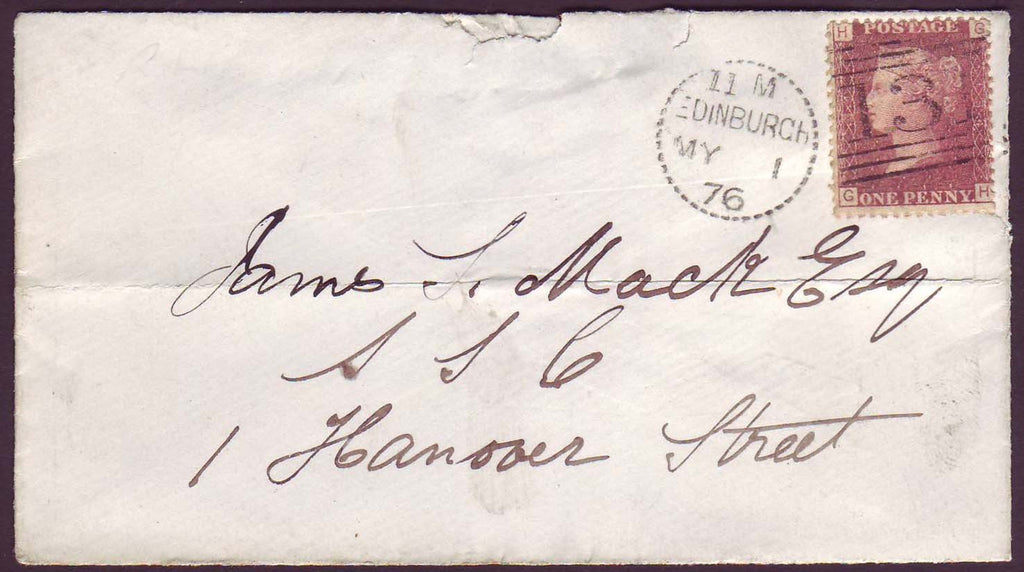 H POSTAGE G
11 M
EDINBURGH
MY 1
76
131
G ONE PENNY H
James S. Mack Esq
S S C
1 Hanover Street